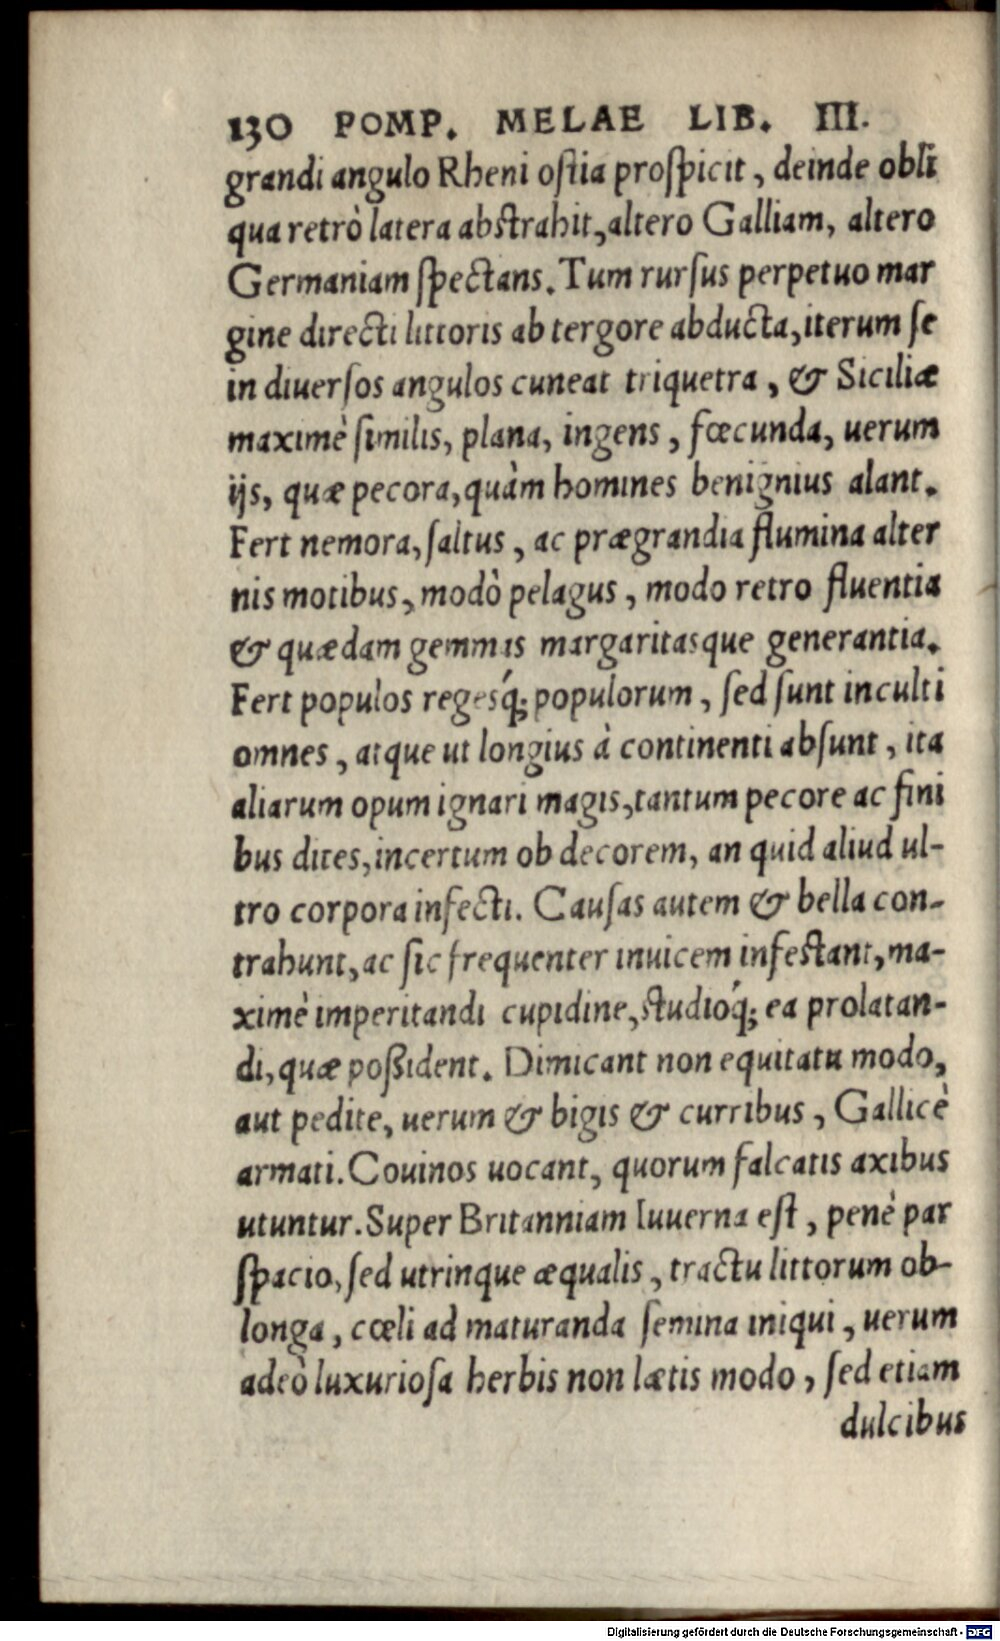 130 POMP. MELAE LIB. III.
grandi angulo Rheni ostia prospicit, deinde obli
qua retrò latera abstrahit, altero Galliam, altero
Germaniam spectans. Tum rursus perpetuo mar
gine directi littoris ab tergore abducta, iterum se
in diuersos angulos cuneat triquetra, & Siciliæ
maximè similis, plana, ingens, fœcunda, uerum
ijs, quæ pecora, quàm homines benignius alant.
Fert nemora, saltus, ac prægrandia flumina alter
nis motibus, modò pelagus, modo retro fluentia
& quædam gemmas margaritasque generantia.
Fert populos regesq́; populorum, sed sunt inculti
omnes, atque ut longius à continenti absunt, ita
aliarum opum ignari magis, tantum pecore ac fini
bus dites, incertum ob decorem, an quid aliud ul-
tro corpora infecti. Causas autem & bella con-
trahunt, ac sic frequenter inuicem infestant, ma-
ximè imperitandi cupidine, studioq́; ea prolatan-
di, quæ poßident. Dimicant non equitatu modo,
aut pedite, uerum & bigis & curribus, Gallicè
armati. Couinos uocant, quorum falcatis axibus
utuntur. Super Britanniam Iuuerna est, penè par
spacio, sed utrinque æqualis, tractu littorum ob-
longa, cœli ad maturanda semina iniqui, uerum
adeò luxuriosa herbis non lætis modo, sed etiam
dulcibus
Digitalisierung gefördert durch die Deutsche Forschungsgemeinschaft - DFG